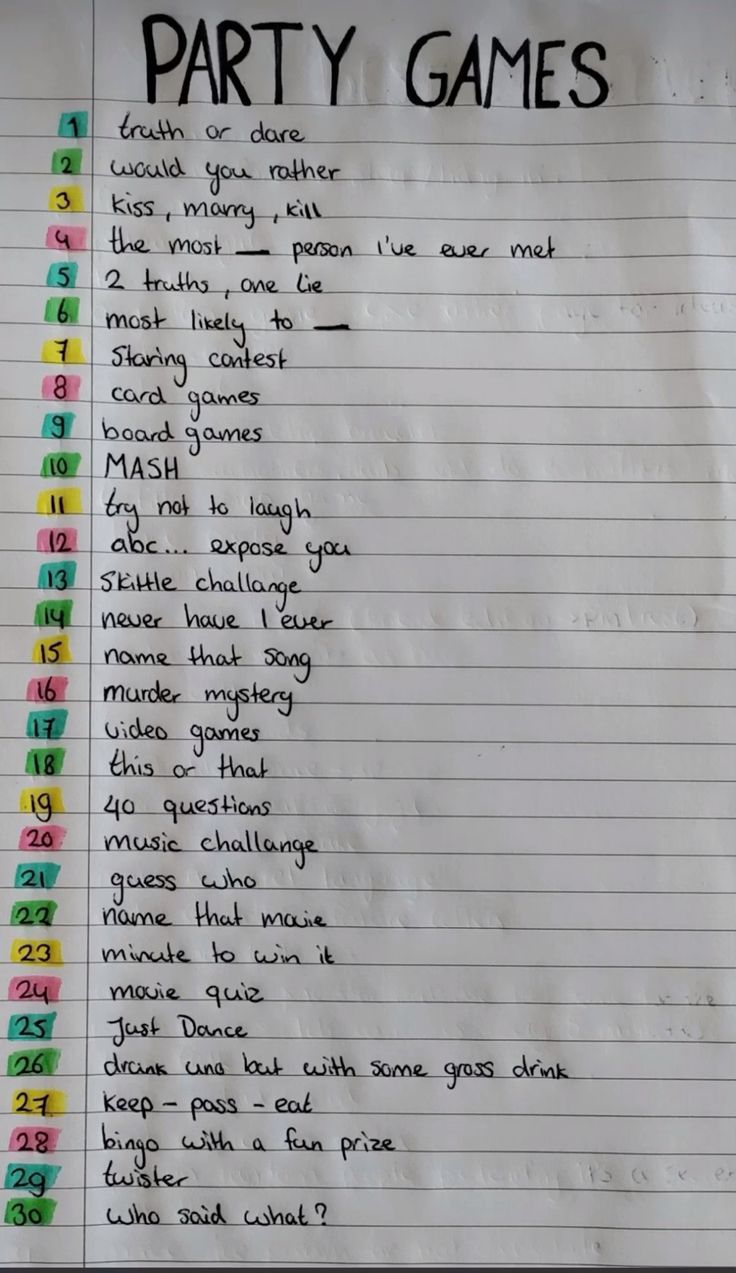 PARTY GAMES
1 truth or dare
2 would you rather
3 kiss, marry, kill
4 the most — person I've ever met
5 2 truths, one lie
6 most likely to —
7 Staring contest
8 card games
9 board games
10 MASH
11 try not to laugh
12 abc... expose you
13 Skittle challange
14 never have I ever
15 name that song
16 murder mystery
17 video games
18 this or that
19 40 questions
20 music challange
21 guess who
22 name that movie
23 minute to win it
24 movie quiz
25 Just Dance
26 drunk uno but with some gross drink
27 keep - pass - eat
28 bingo with a fun prize
29 twister
30 who said what?